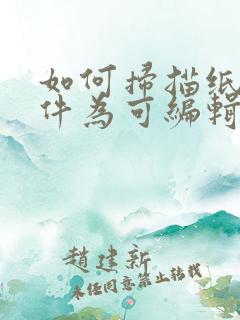 如何掃描纸
件為可編輯
趙建新
未经同意禁止转载